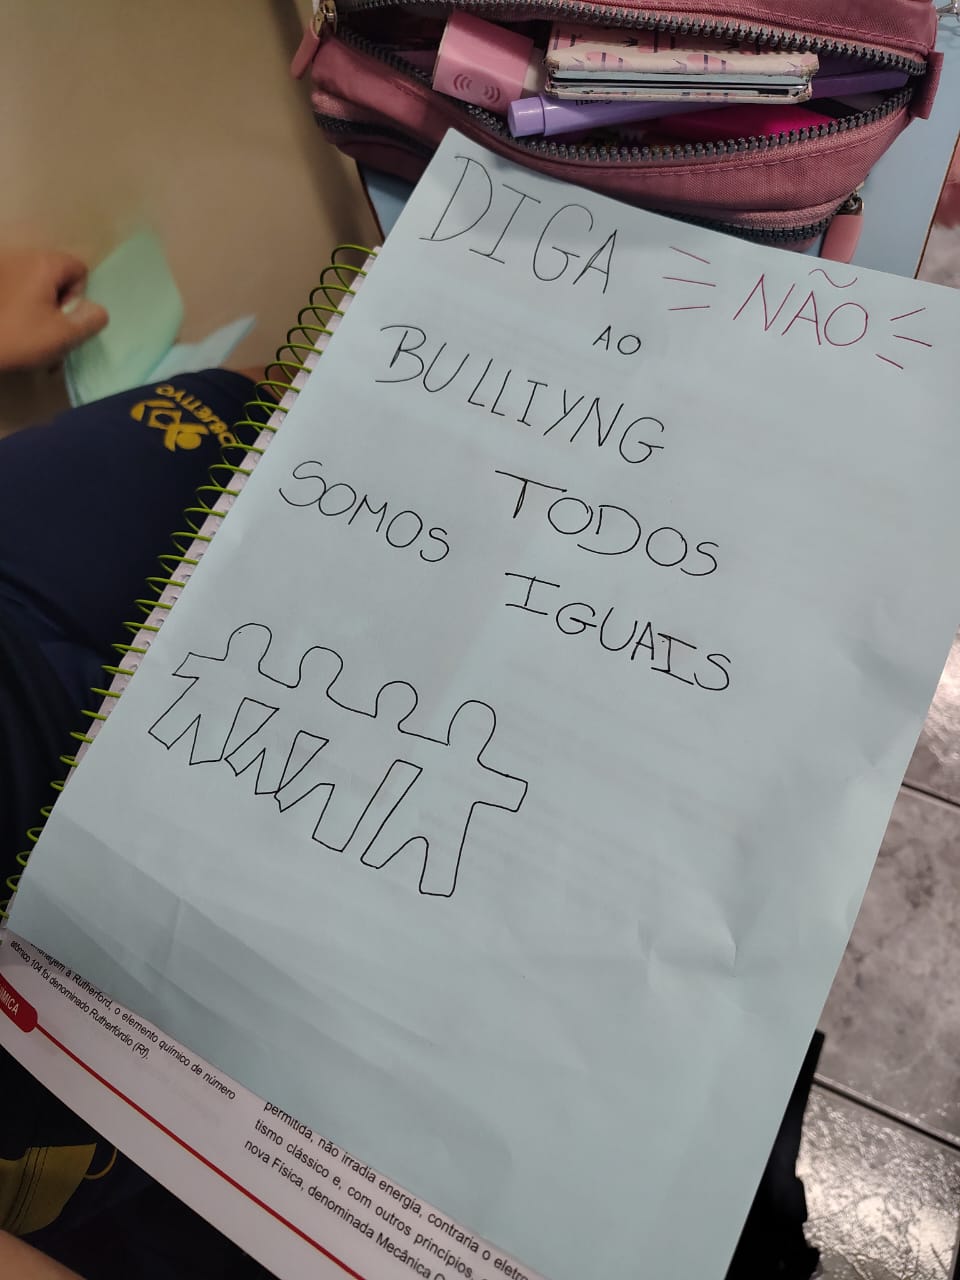 DIGA NÃO
AO
BULLIYNG
SOMOS TODOS
IGUAIS
OBJETIVO
à Rutherford, o elemento químico de número
atômico 104 foi denominado Rutherfórdio (Rf).
permitida, não irradia energia, contraria o
tismo clássico e, com outros princípios,
nova Física, denominada Mecânica